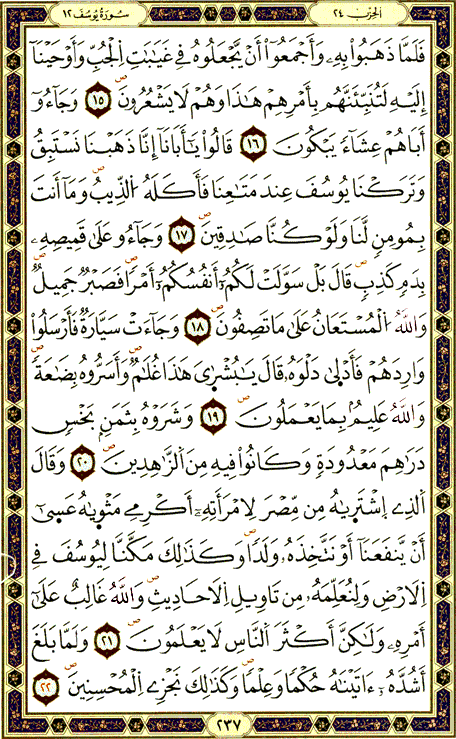 الحزب ٢٤
سورة يوسف ١٢
فَلَمَّا ذَهَبُواْ بِهِۦ وَأَجْمَعُوٓاْ أَنْ يَّجْعَلُوهُ فِے غَيَٰبَٰتِ اِ۬لْجُبِّ وَأَوْحَيْنَآ
إِلَيْهِ لَتُنَبِّئَنَّهُم بِأَمْرِهِمْ هَٰذَا وَهُمْ لَا يَشْعُرُونَۖ ١٥ وَجَآءُوٓ
أَبَاهُمْ عِشَآءٗ يَبْكُونَۖ ١٦ قَالُواْ يَٰٓأَبَانَآ إِنَّا ذَهَبْنَا نَسْتَبِقُ
وَتَرَكْنَا يُوسُفَ عِندَ مَتَٰعِنَا فَأَكَلَهُ اُ۬لذِّيبُۖ وَمَآ أَنتَ
بِمُومِنٖ لَّنَا وَلَوْ كُنَّا صَٰدِقِينَۖ ١٧ وَجَآءُو عَلَىٰ قَمِيصِهِۦ
بِدَمٖ كَذِبٖۖ قَالَ بَلْ سَوَّلَتْ لَكُمُۥٓ أَنفُسُكُمُۥٓ أَمْراٗۖ فَصَبْرٞ جَمِيلٞۖ
وَاللَّهُ اُ۬لْمُسْتَعَانُ عَلَىٰ مَا تَصِفُونَۖ ١٨ وَجَآءَتْ سَيَّارَةٞ فَأَرْسَلُواْ
وَارِدَهُمْ فَأَدْلَىٰ دَلْوَهُۥۖ قَالَ يَٰبُشْر۪ىٰ هَٰذَا غُلَٰمٞۖ وَأَسَرُّوهُ بِضَٰعَةٗۖ
وَاللَّهُ عَلِيمُۢ بِمَا يَعْمَلُونَۖ ١٩ وَشَرَوْهُ بِثَمَنِۢ بَخْسٖ
دَرَٰهِمَ مَعْدُودَةٖ وَكَانُواْ فِيهِ مِنَ اَ۬لزَّٰهِدِينَۖ ٢٠ وَقَالَ
اَ۬لذِے اِ۪شْتَر۪يٰهُ مِن مِّصْرَ لِامْرَأَتِهِۦٓ أَكْرِمِے مَثْوٜيٰهُ عَسٜىٰٓ
أَنْ يَّنفَعَنَآ أَوْ نَتَّخِذَهُۥ وَلَداٗۖ وَكَذَٰلِكَ مَكَّنَّا لِيُوسُفَ فِے
اِ۬لَارْضِ وَلِنُعَلِّمَهُۥ مِن تَاوِيلِ اِ۬لَاحَادِيثِۖ وَاللَّهُ غَالِبٌ عَلَىٰٓ
أَمْرِهِۦ وَلَٰكِنَّ أَكْثَرَ اَ۬لنَّاسِ لَا يَعْلَمُونَۖ ٢١ وَلَمَّا بَلَغَ
أَشُدَّهُۥٓ ءَاتَيْنَٰهُ حُكْماٗ وَعِلْماٗۖ وَكَذَٰلِكَ نَجْزِے اِ۬لْمُحْسِنِينَۖ ٢٢
٢٣٧